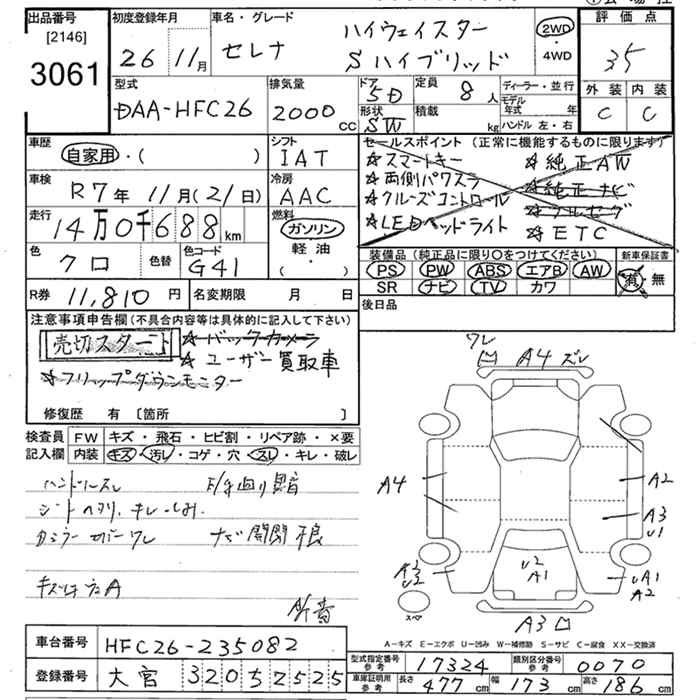 出品番号 初度登録年月 車名・グレード 評価点
[2146] 26 11月 セレナ ハイウェイスター 2WD 35
3061 Sハイブリッド ・4WD
型式 排気量 ドア 5D 定員 8人 ディーラー・並行 外装 内装
DAA-HFC26 2000cc 形状 SW 積載 kg モデル年式 年 C C
ハンドル 左・右
車歴 シフト セールスポイント (正常に機能するものに限ります)
自家用・( ) IAT ☆スマートキー ☆純正AW
車検 冷房 ☆両側パワスラ ☆純正ナビ
R7年 11月(21日) AAC ☆クルーズコントロール ☆フルセグ
走行 燃料 ☆LEDヘッドライト ☆ETC
14万0千688km ガソリン
色 色替 色コード 軽油 装備品 (純正品に限り○をつけてください) 新車保証書
クロ G41 ( ・ ) PS PW ABS エアB AW 有・無
R券 11,810円 名変期限 月 日 SR ナビ TV カワ
注意事項申告欄 (不具合内容等は具体的に記入して下さい) 後日品
売切スタート ☆バックカメラ
☆ユーザー買取車
☆フリップダウンモニター
修復歴 有 〔箇所 〕
検査員 FW キズ・飛石・ヒビ割・リペア跡・×要
記入欄 内装 キズ・汚レ・コゲ・穴・スレ・キレ・破レ
ワレ A4 ズレ
ハンドルスレ
A4 A2
シートヘタリ、キレ、しみ、 A3
U1
ナビ開閉不良
U2
A1
A3
U2
U1
A2
スペア
A3
車台番号 HFC26-235082
A-キズ E-エクボ U-凹み W-補修跡 S-サビ C-腐食 XX-交換済
型式指定番号 参考 17324 類別区分番号 参考 0070
登録番号 大宮 320 5 2525
車庫証明用 参考 長さ 477cm 幅 173cm 高さ 186cm